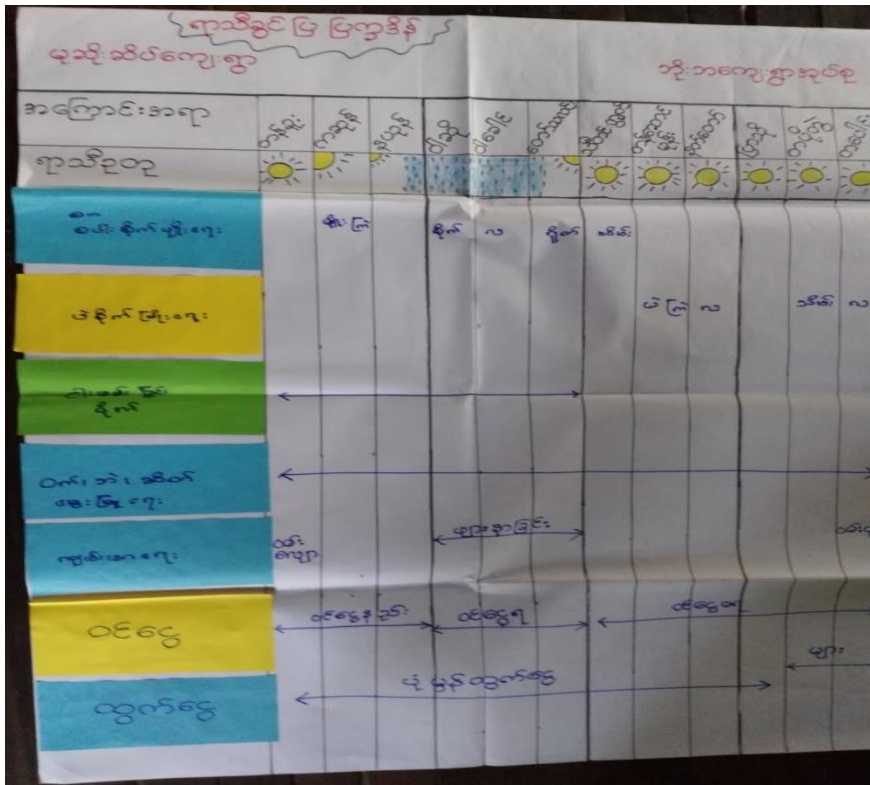 ရာသီခွင် ပြ ပြက္ခဒိန်
မုဆိုးဆိပ်ကျေးရွာ
ဘိုးဘကျေးရွာအုပ်စု
အကြောင်းအရာ
တန်ခူး
ကဆုန်
နယုန်
ဝါဆို
ဝါခေါင်
တော်သလင်း
သီတင်းကျွတ်
တန်ဆောင်မုန်း
နတ်တော်
ပြာသို
တပို့တွဲ
တပေါင်း
ရာသီဥတု
စပါးစိုက်ပျိုးရေး
ပျိုးကြဲ
စိုက် လ
ရိတ် သိမ်း
ပဲစိုက်ပျိုးရေး
ပဲ ကြဲ လ
သိမ်း လ
စိုက်
ဝက်၊ ဘဲ၊ ဆိတ်
မွေးမြူရေး
ကျန်းမာရေး
ဝမ်း
လျော
ဖျားနာခြင်း
ဝင်ငွေ
ဝင်ငွေနည်း
ဝင်ငွေရ
ထွက်ငွေ
ပုံမှန်ထွက်ငွေ
များ